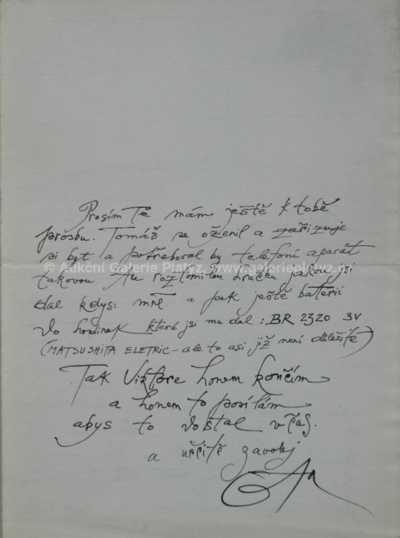 Prosím Tě mám ještě k tobě
prosbu. Tomáš se oženil a zařizuje
si byt a potřeboval by telefoní aparát
takovou tu roztomilou hračku jakou jsi
dal kdysi mně a pak ještě baterii
do hodinek kterou jsi mu dal: BR 2320 3V
(MATSUSHITA ELETRIC - ale to asi již není důležité)
Tak Viktore honem končím
a honem to posílám
abys to dostal včas.
a určitě zavolej
© Aukční Galerie Platýz, www.galerieplatyz.cz